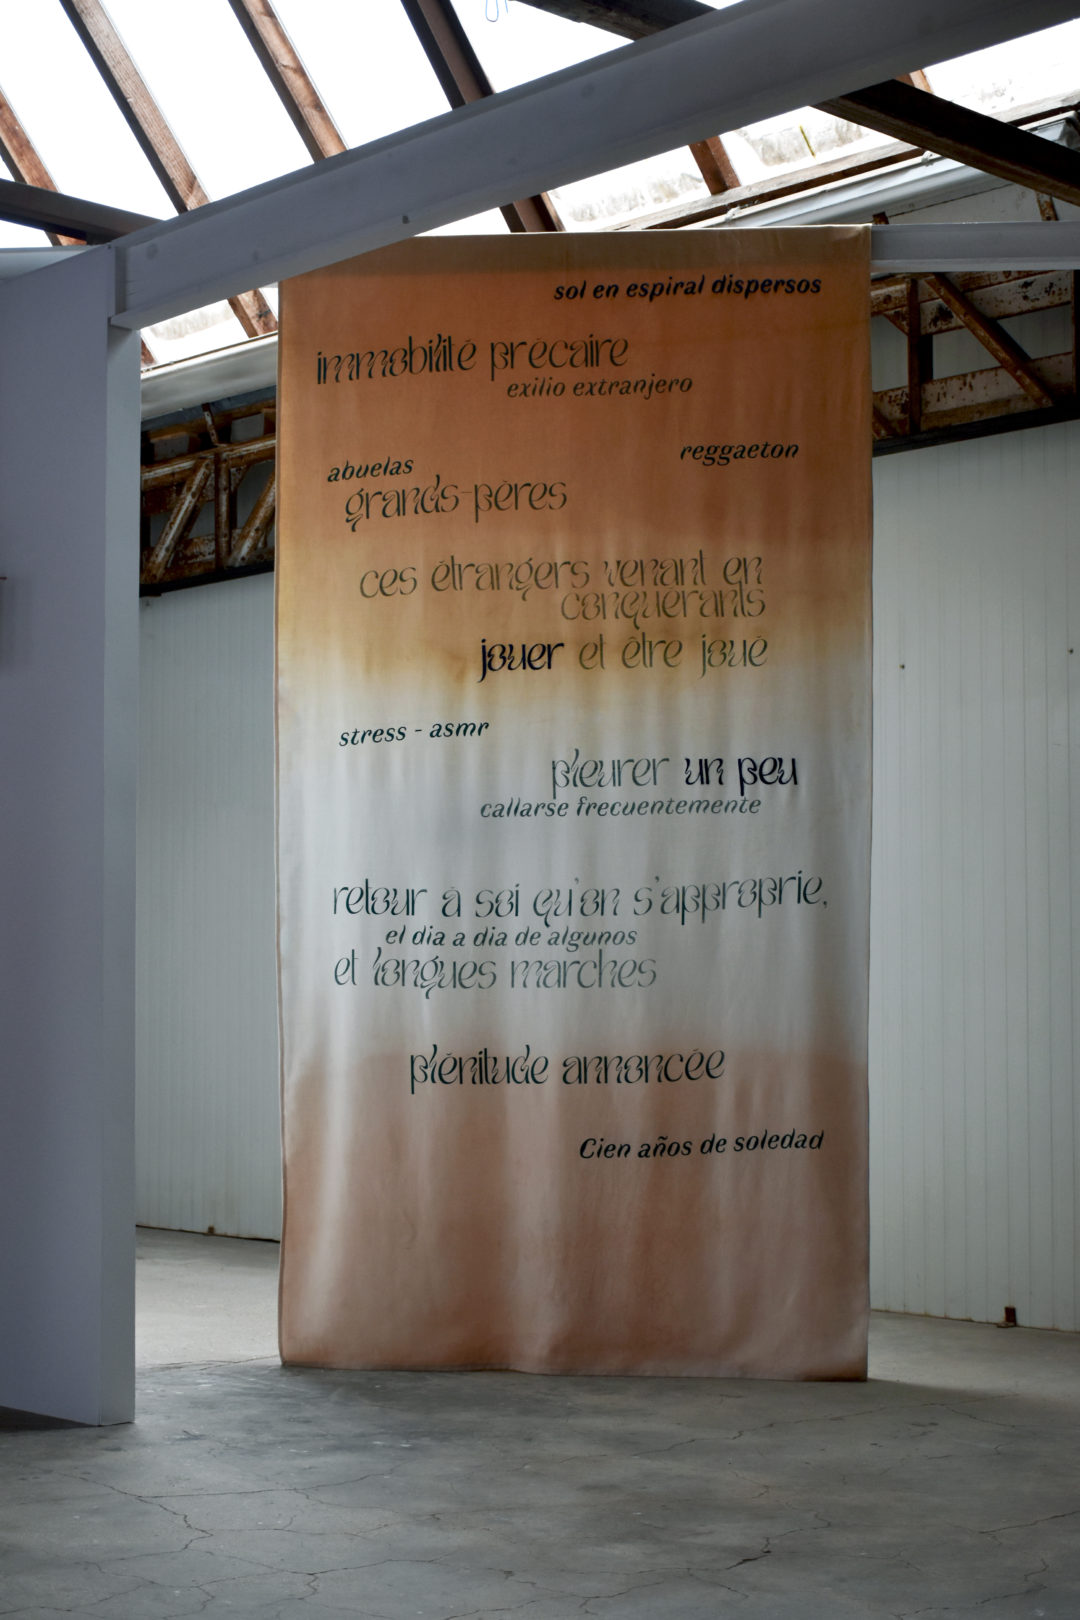 sol en espiral dispersos
immobilité précaire
exilio extranjero
reggaeton
abuelas
grands-pères
ces étrangers venant en
conquérants
jouer et être joué
stress - asmr
pleurer un peu
callarse frecuentemente
retour à soi qu'on s'approprie,
el dia a dia de algunos
et longues marches
plénitude annoncée
Cien años de soledad